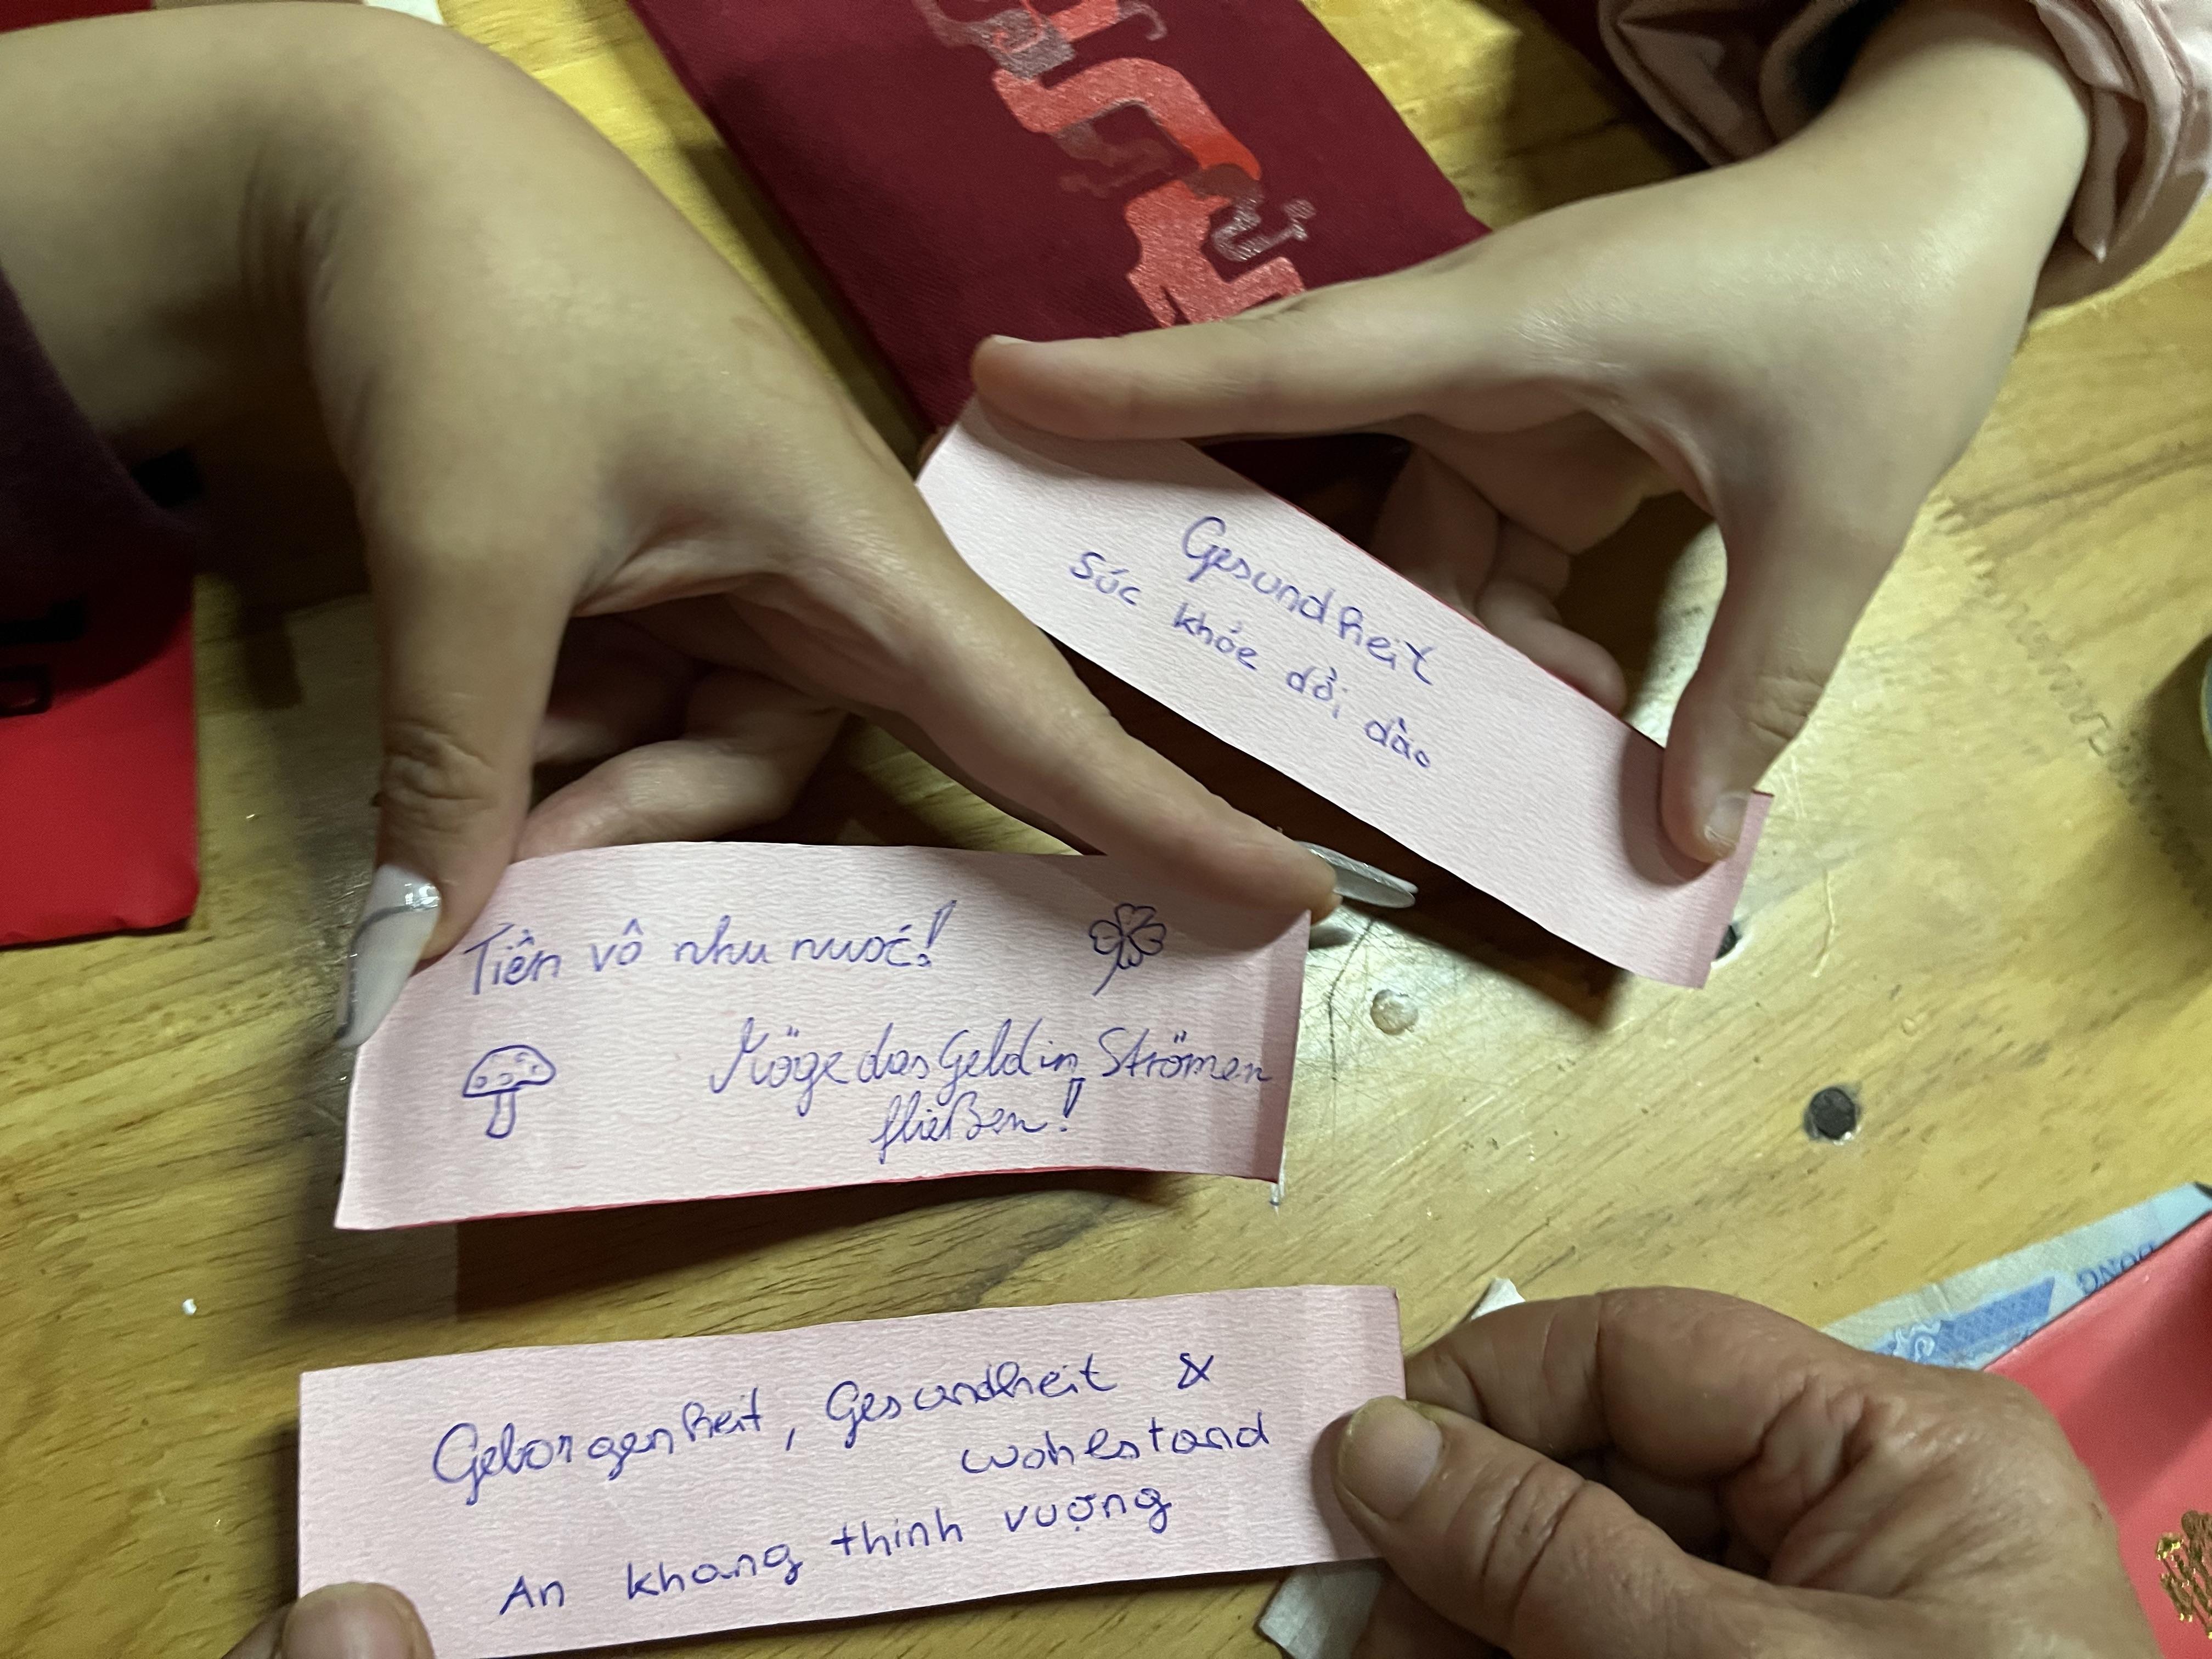 Gesundheit
Sức khỏe dồi dào
Tiền vô như nước!
Möge das Geld in Strömen
fließen!
Geborgenheit, Gesundheit &
wohlstand
An khang thinh vượng
ĐỒNG